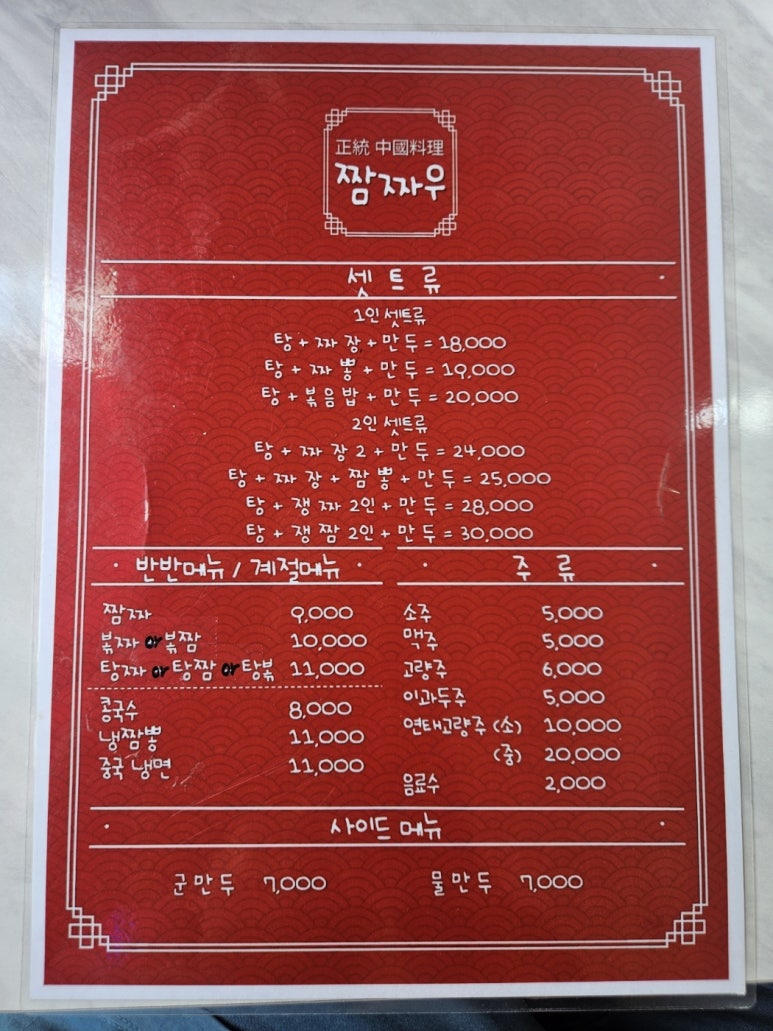 正統 中國料理
짬짜우
셋 트 류
1인 셋트류
탕 + 짜 장 + 만 두 = 18,000
탕 + 짜 뽕 + 만 두 = 19,000
탕 + 볶음밥 + 만 두 = 20,000
2인 셋트류
탕 + 짜 장 2 + 만 두 = 24,000
탕 + 짜 장 + 짬 뽕 + 만 두 = 25,000
탕 + 쟁 짜 2인 + 만 두 = 28,000
탕 + 쟁 짬 2인 + 만 두 = 30,000
· 반반메뉴 / 계절메뉴 ·
짬짜 9,000
볶짜 or 볶짬 10,000
탕짜 or 탕짬 or 탕볶 11,000
콩국수 8,000
냉짬뽕 11,000
중국 냉면 11,000
· 주 류 ·
소주 5,000
맥주 5,000
고량주 6,000
이과두주 5,000
연태고량주 (소) 10,000
(중) 20,000
음료수 2,000
· 사이드 메뉴 ·
군만두 7,000
물만두 7,000